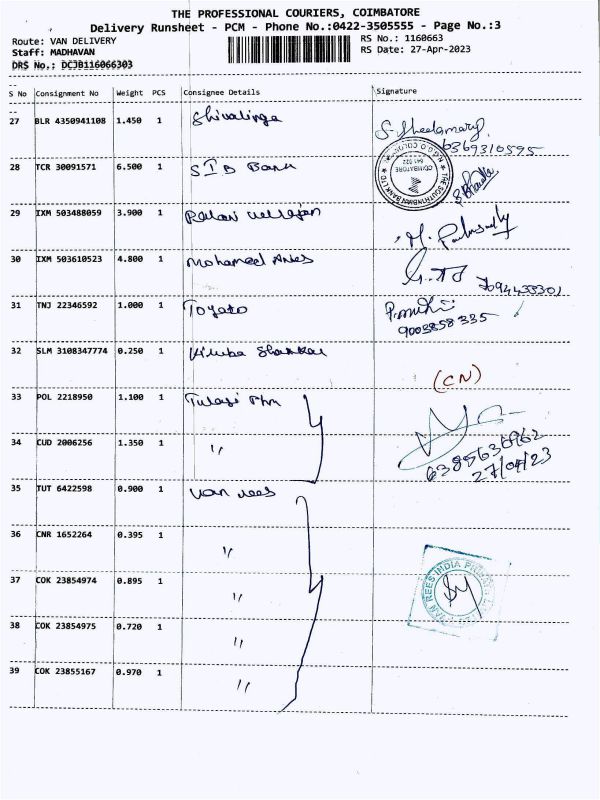 THE PROFESSIONAL COURIERS, COIMBATORE
Delivery Runsheet - PCM - Phone No.:0422-3505555 - Page No.:3
Route: VAN DELIVERY RS No.: 1160663
Staff: MADHAVAN RS Date: 27-Apr-2023
DRS No.: DCJB116066303
S No Consignment No Weight PCS Consignee Details Signature
27 BLR 4350941108 1.450 1 Shivalinga S. Sheelamary
6369310595
28 TCR 30091571 6.500 1 SIB Bank THE SOUTH INDIAN BANK LTD. COIMBATORE 641 022
29 IXM 503488059 3.900 1
30 IXM 503610523 4.800 1 Mohamed
7094433301
31 TNJ 22346592 1.000 1 Toyato
9003858335
32 SLM 3108347774 0.250 1 Shankar (CN)
33 POL 2218950 1.100 1 Tulasi
34 CUD 2006256 1.350 1 "
27/04/23
35 TUT 6422598 0.900 1 Van Rees
36 CNR 1652264 0.395 1 "
37 COK 23854974 0.895 1 " VAN REES INDIA PRIVATE
38 COK 23854975 0.720 1 "
39 COK 23855167 0.970 1 "